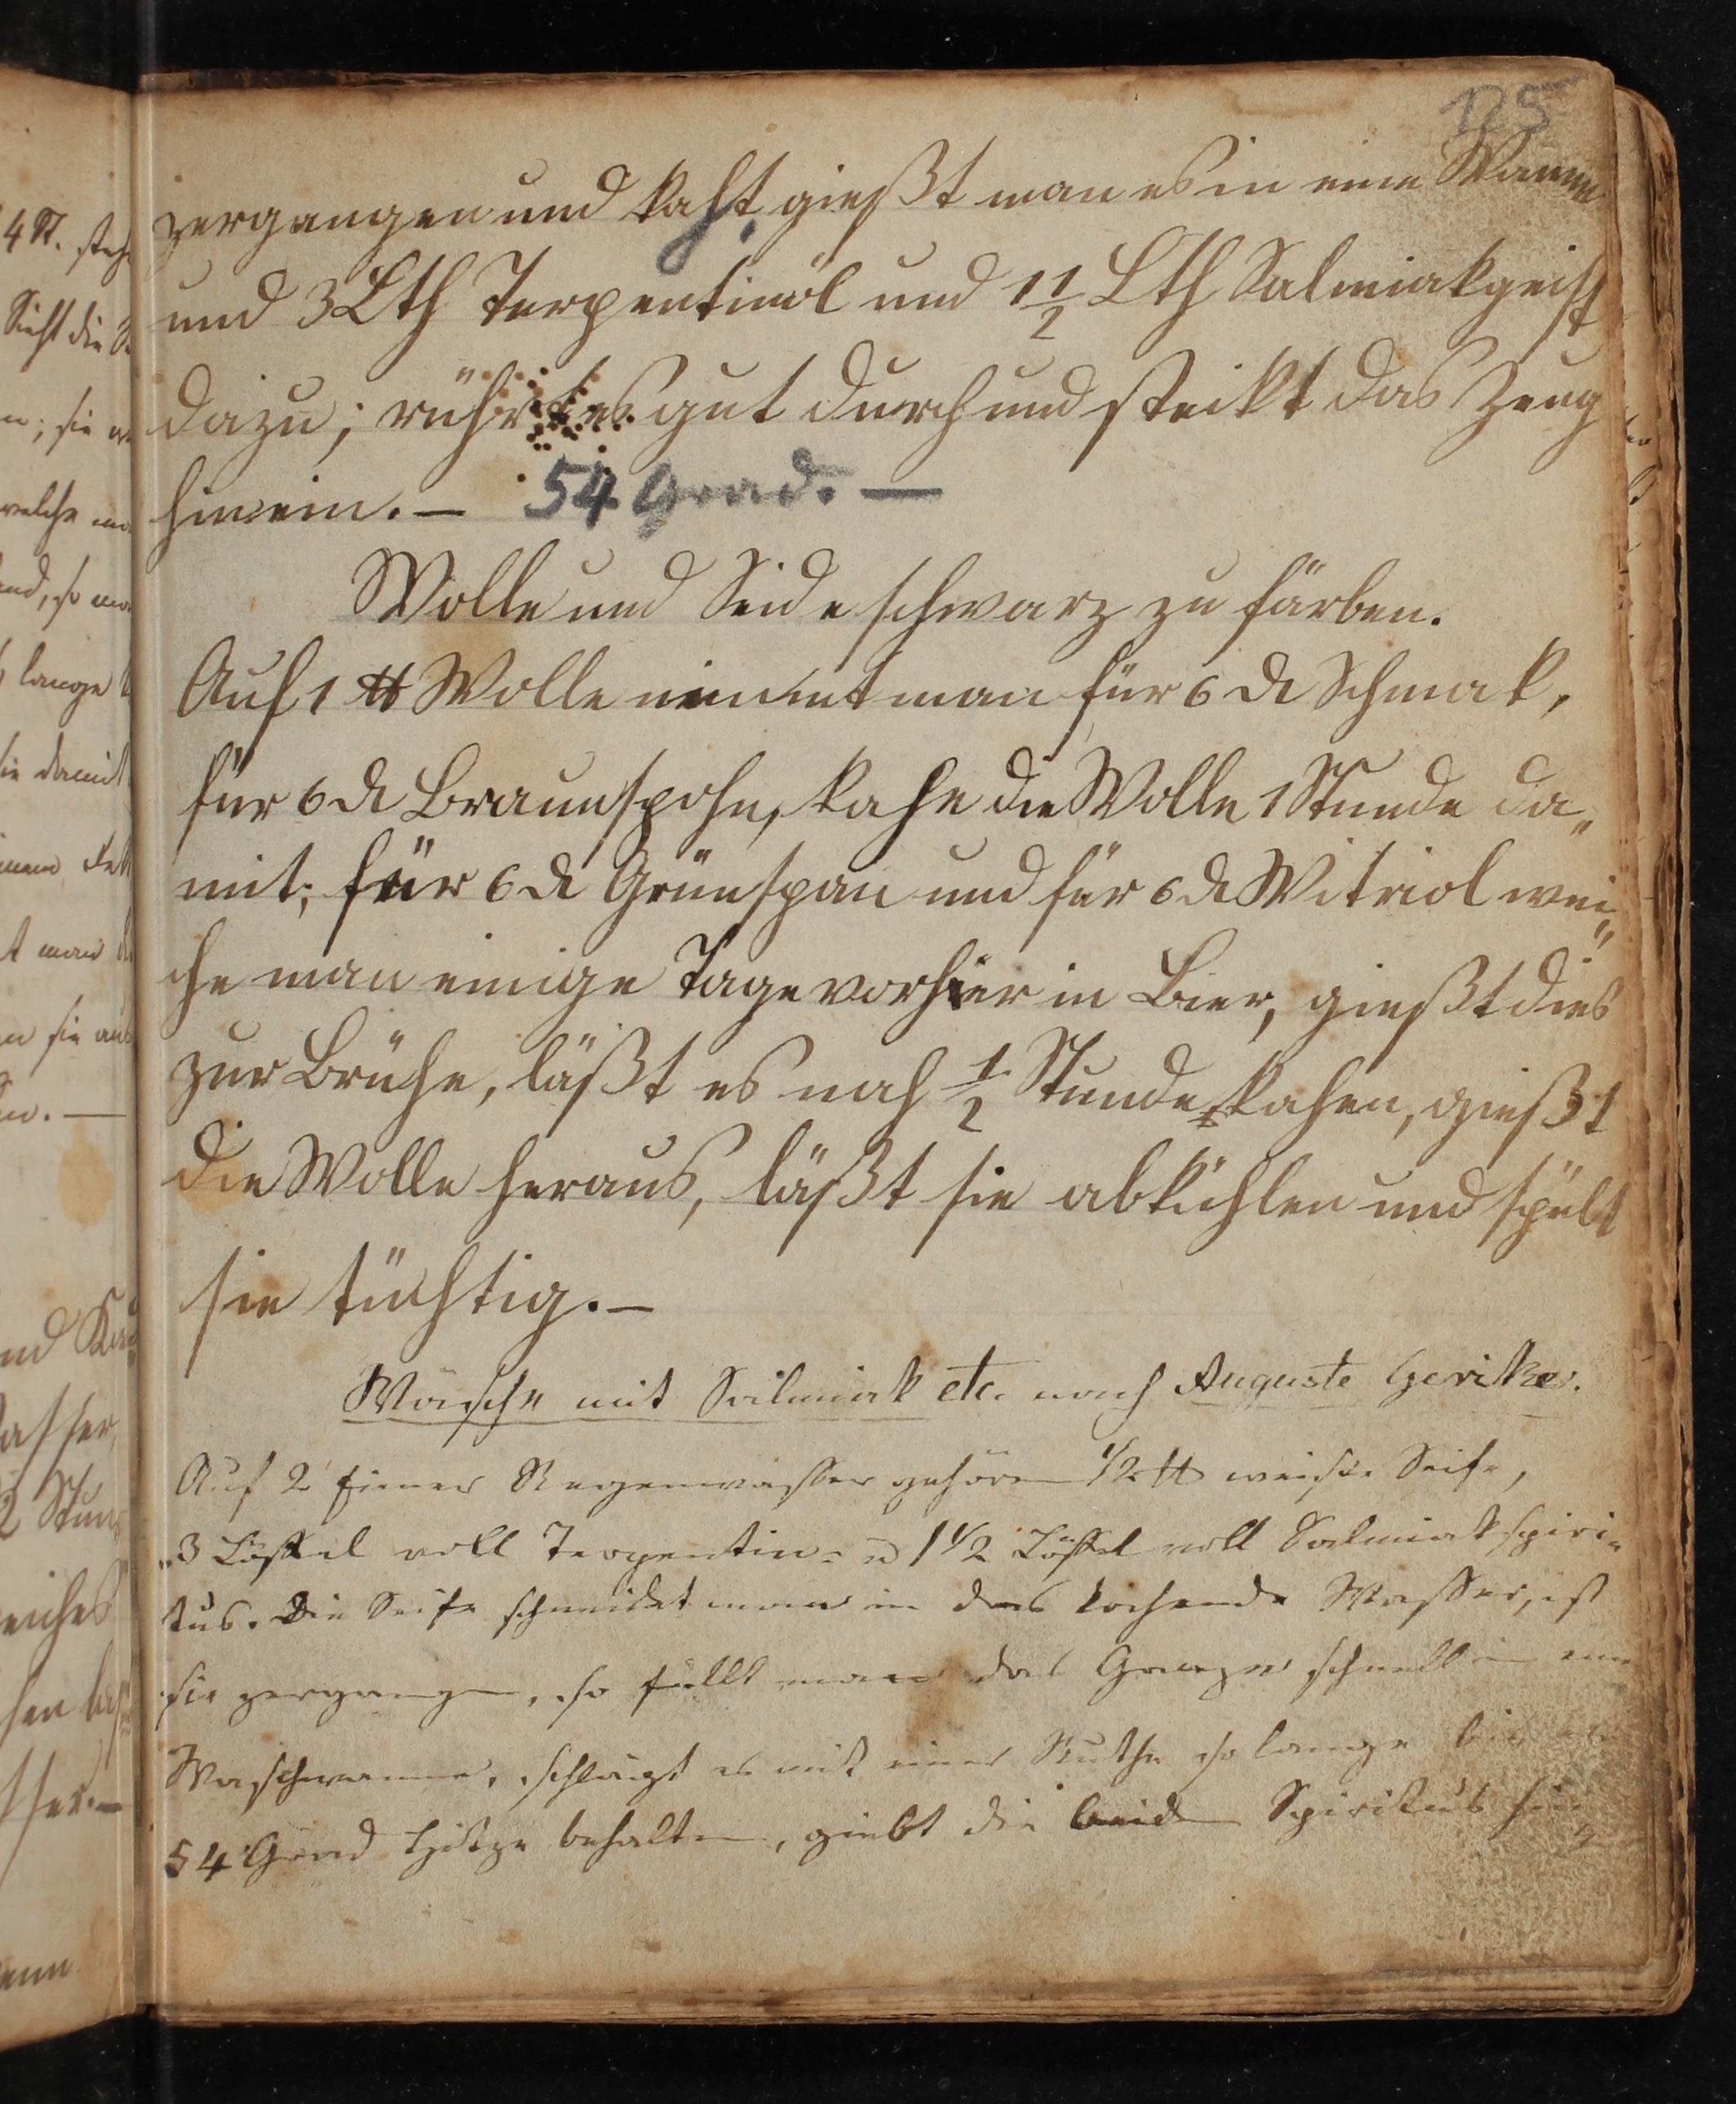 125
zergangen und kaht, gießt man es in eine Wanne
und 3 Lth Terpentinöl und 1 1/2 Lth Salmiakgeist
dazu; rührt es gut durch und steckt das Zeug
hinein. — 54 Grad. —
Wolle und Seide schwarz zu färben.
Auf 1 ℔ Wolle nimmt man für 6 d Schmak,
für 6 d Braunspohn, kahe die Wolle 1 Stunde da„
mit; für 6 d Grünspan und für 6 d Witriol wei„
che man einige Tage vorher in Bier, gießt dies
zur Brühe, läßt es noch 1/2 Stunde kahen, gießt
die Wolle heraus, läßt sie abkühlen und spült
sie tüchtig. —
Wäsche mit Salmiak etc. nach Auguste Gerike.
Auf 2 Eimer Regenwasser gehören 1/2 ℔ weiße Seife,
3 Löffel voll Terpentin- u 1 1/2 Löffel voll Salmiakspiri„
tus. Die Seife schneidet man in das kochende Wasser, ist
sie zergangen, so füllt man das Ganze schnell in eine
Waschwanne, schlägt es mit einer Ruthe so lange bis
54 Grad Hitze behalten, giebt die beiden Spiritus hin„